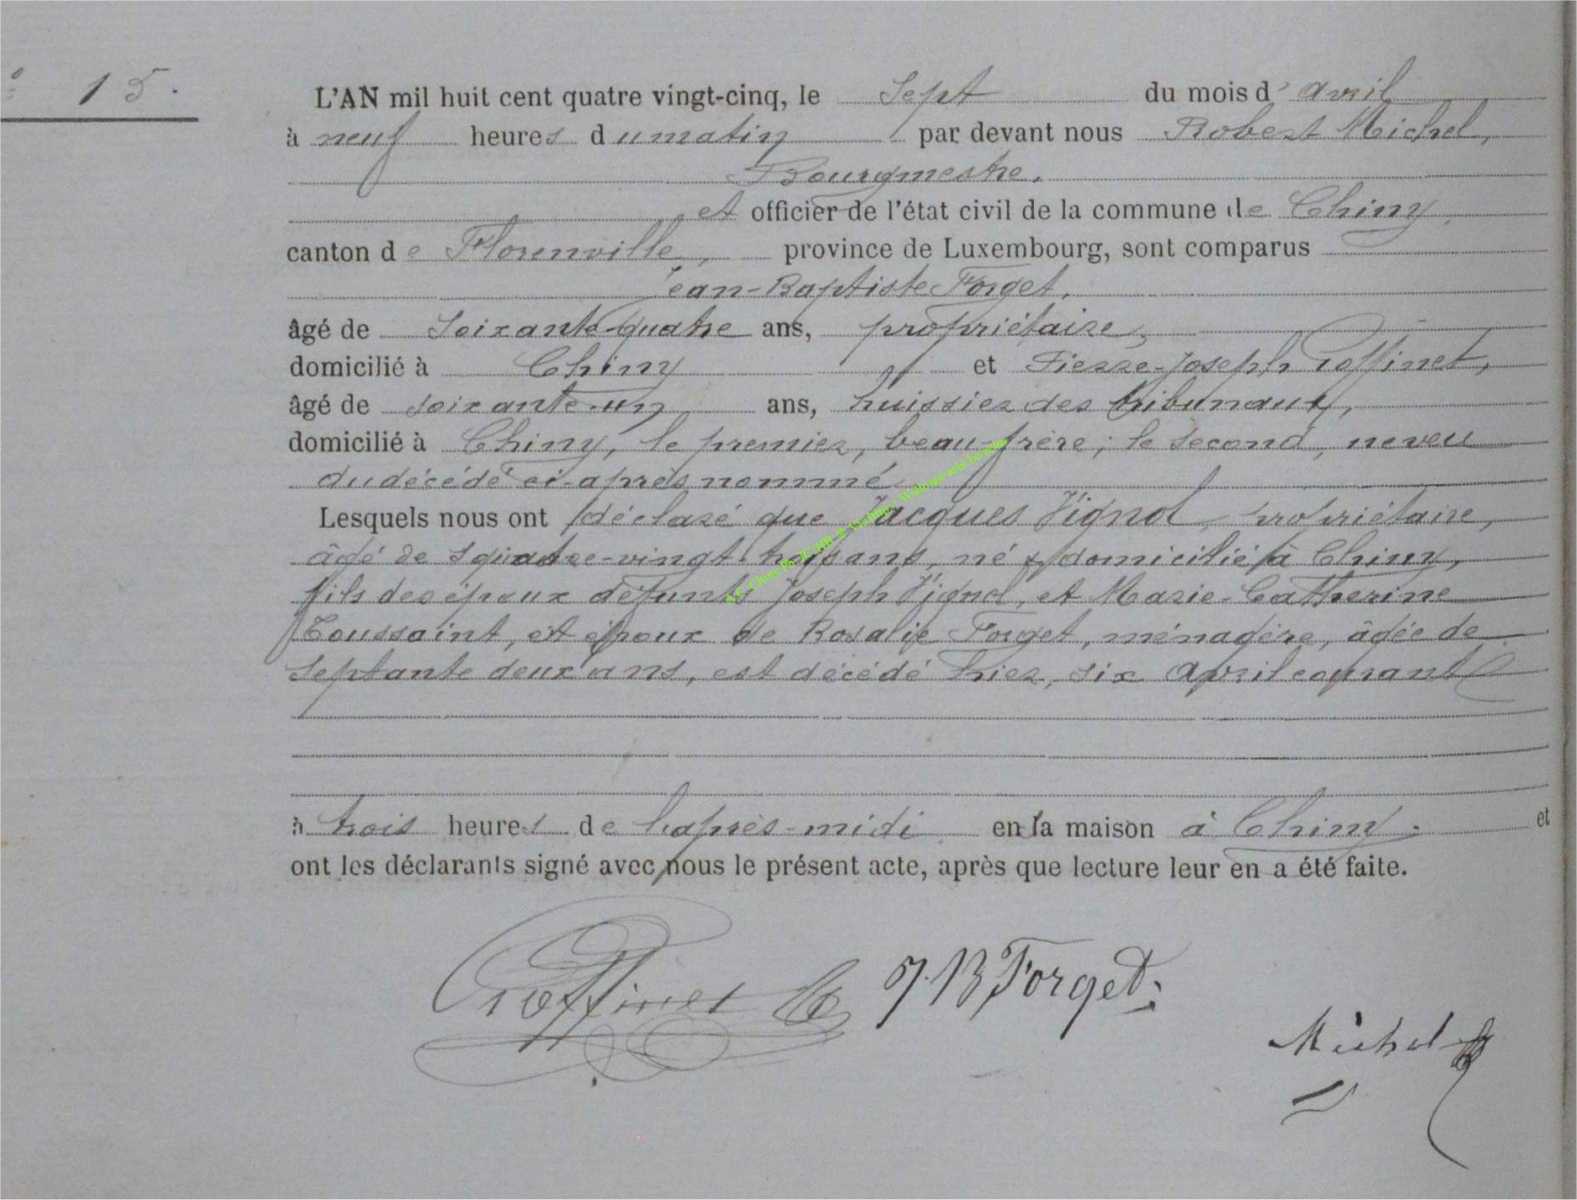 15.
L'AN mil huit cent quatre vingt-cinq, le Sept du mois d' avril
à neuf heures du matin par devant nous Robert Michel,
Bourgmestre,
et officier de l'état civil de la commune de Chiny,
canton de Florenville, province de Luxembourg, sont comparus
Jean-Baptiste Forget,
âgé de Soixante-quatre ans, propriétaire,
domicilié à Chiny et Pierre-Joseph Poffinet,
âgé de soixante-un ans, huissier des tribunaux,
domicilié à Chiny, le premier, beau-frère; le second, neveu
du décédé ci-après nommé
Lesquels nous ont déclaré que Jacques Pignol, propriétaire,
âgé de quatre-vingt trois ans, né & domicilié à Chiny,
fils des époux défunts Joseph Pignol, et Marie-Catherine
Toussaint, et époux de Rosalie Forget, ménagère, âgée de
septante deux ans, est décédé hier, six avril courant
à trois heures de l'après-midi en sa maison à Chiny. et
ont les déclarants signé avec nous le présent acte, après que lecture leur en a été faite.
Poffinet J. B Forget.
Michel